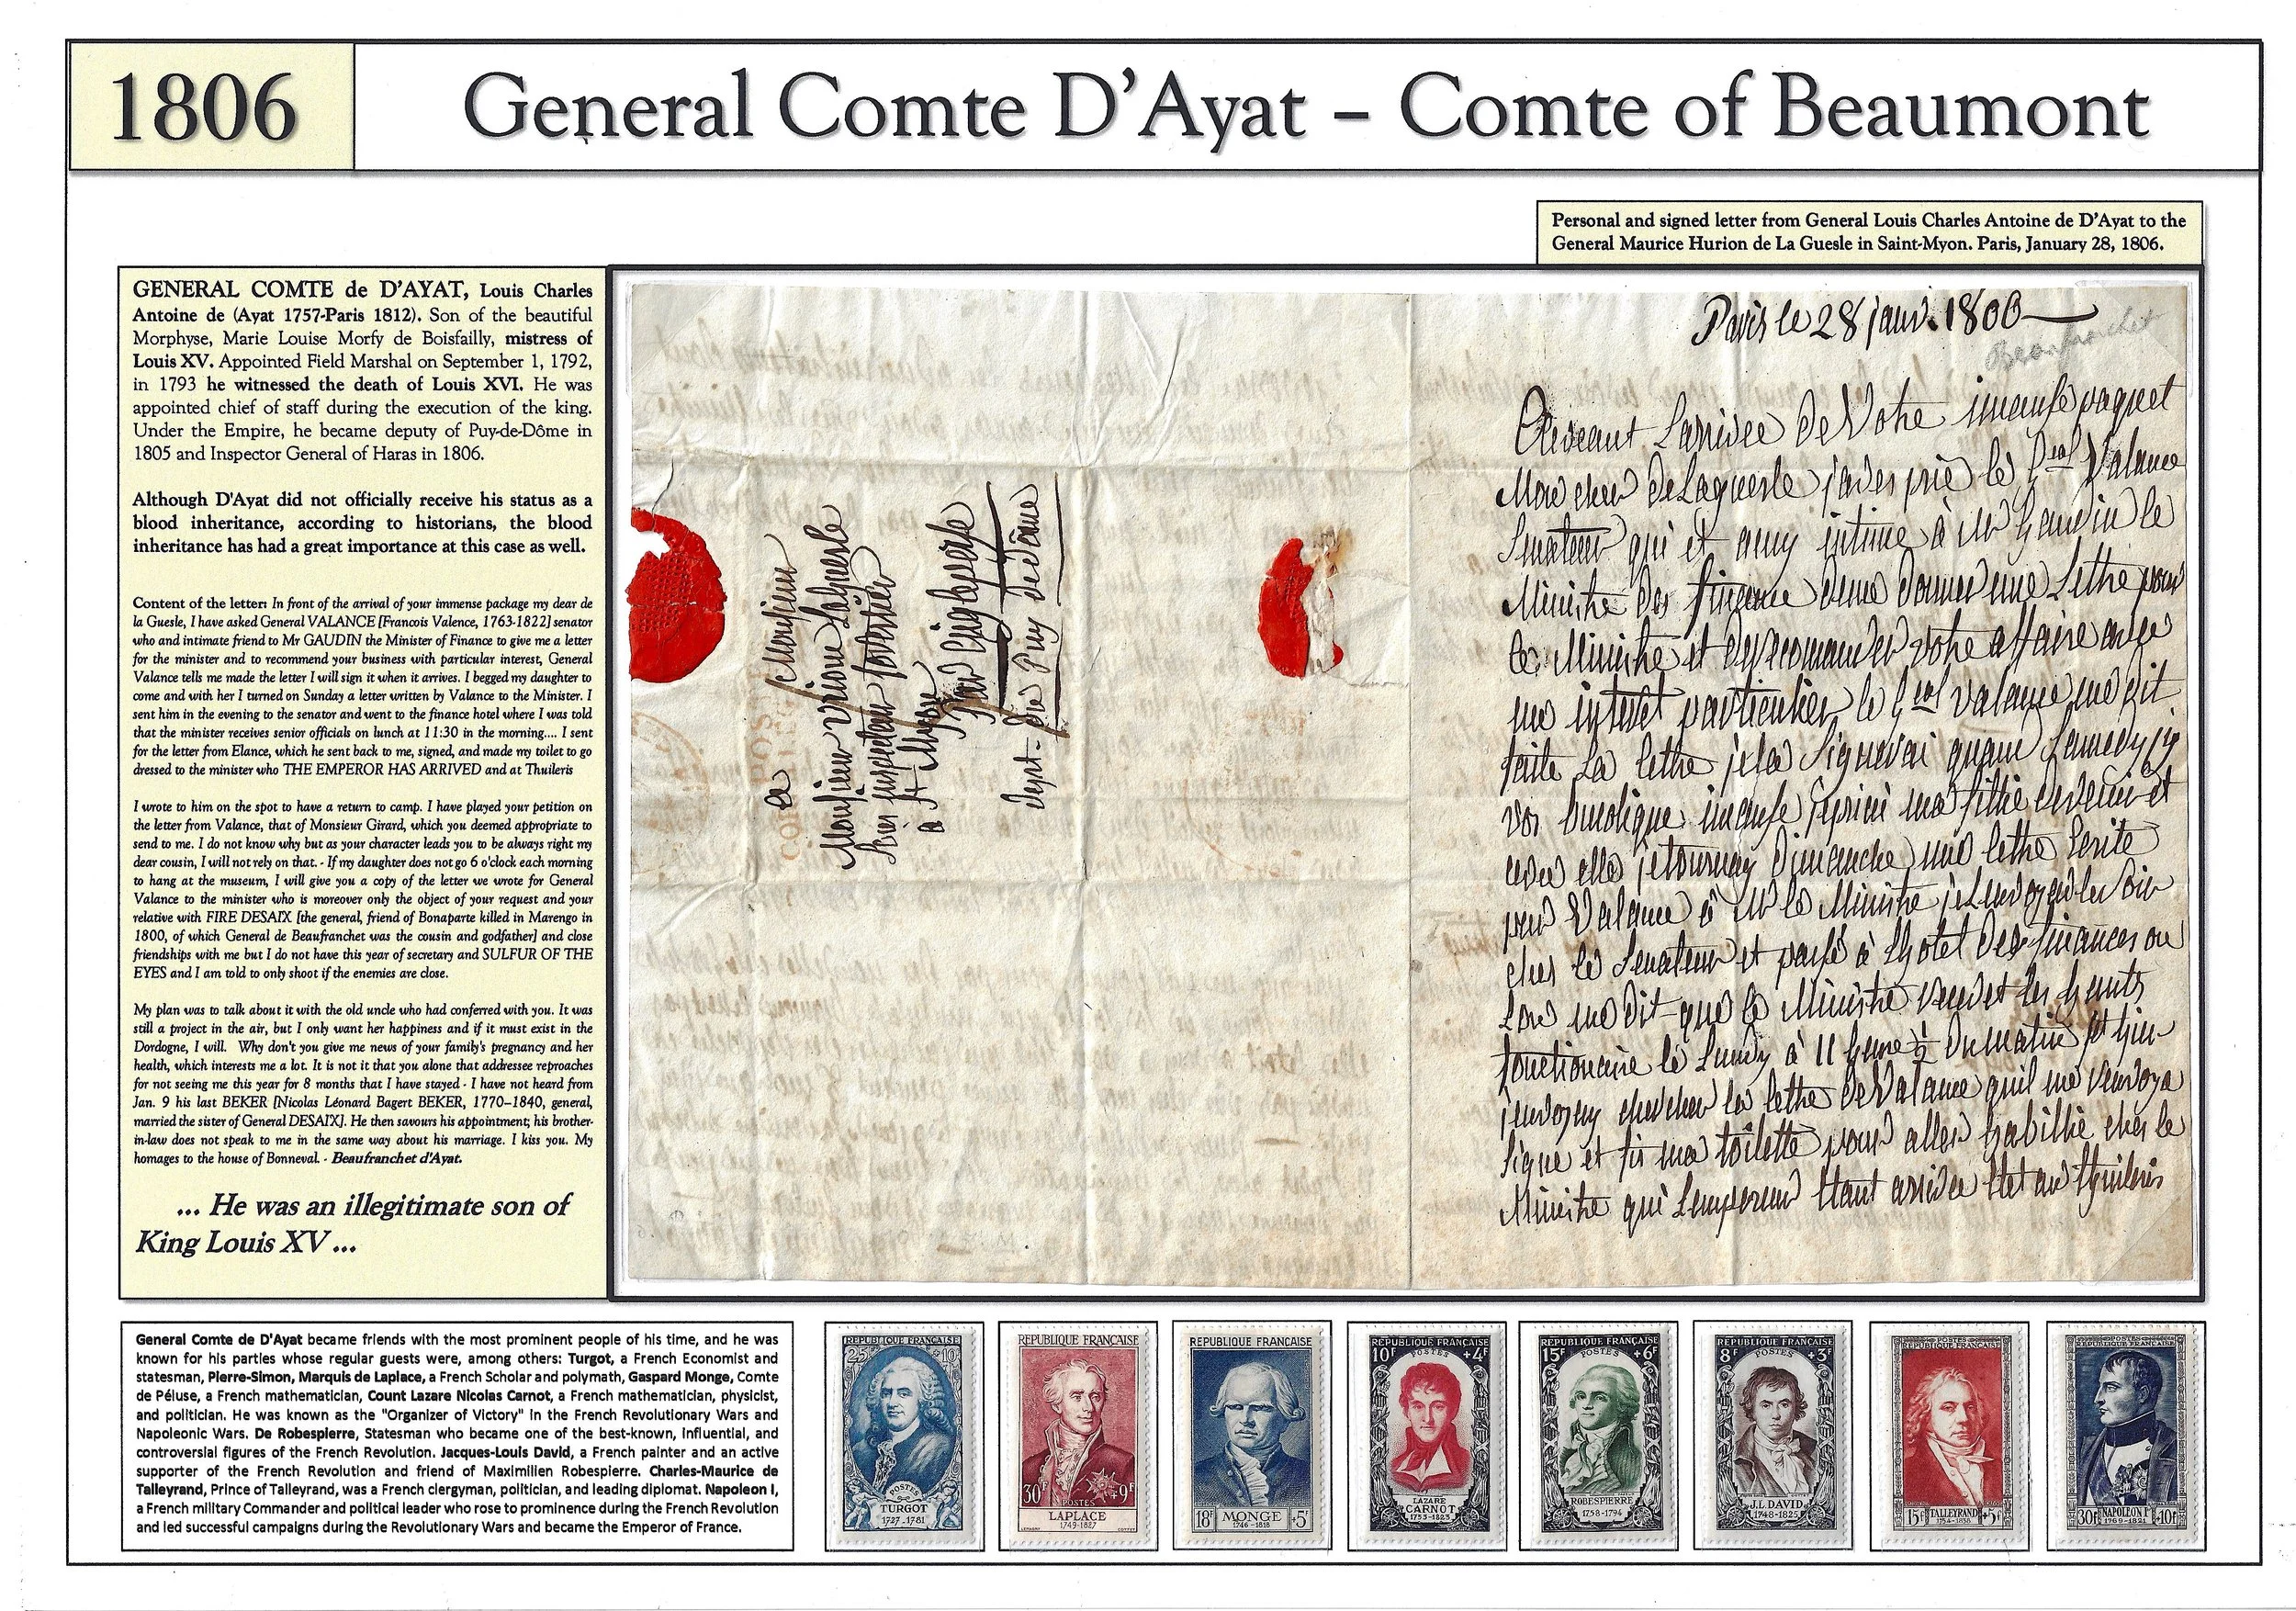 1806
General Comte D'Ayat – Comte of Beaumont
Personal and signed letter from General Louis Charles Antoine de D'Ayat to the
General Maurice Hurion de La Guesle in Saint-Myon. Paris, January 28, 1806.
GENERAL COMTE de D'AYAT, Louis Charles
Antoine de (Ayat 1757-Paris 1812). Son of the beautiful
Morphyse, Marie Louise Morfy de Boisfailly, mistress of
Louis XV. Appointed Field Marshal on September 1, 1792,
in 1793 he witnessed the death of Louis XVI. He was
appointed chief of staff during the execution of the king.
Under the Empire, he became deputy of Puy-de-Dôme in
1805 and Inspector General of Haras in 1806.
Although D'Ayat did not officially receive his status as a
blood inheritance, according to historians, the blood
inheritance has had a great importance at this case as well.
Content of the letter: In front of the arrival of your immense package my dear de
la Guesle, I have asked General VALANCE [Francois Valence, 1763-1822] senator
who and intimate friend to Mr GAUDIN the Minister of Finance to give me a letter
for the minister and to recommend your business with particular interest, General
Valance tells me made the letter I will sign it when it arrives. I begged my daughter to
come and with her I turned on Sunday a letter written by Valance to the Minister. I
sent him in the evening to the senator and went to the finance hotel where I was told
that the minister receives senior officials on lunch at 11:30 in the morning.... I sent
for the letter from Elance, which he sent back to me, signed, and made my toilet to go
dressed to the minister who THE EMPEROR HAS ARRIVED and at Thuileris
I wrote to him on the spot to have a return to camp. I have played your petition on
the letter from Valance, that of Monsieur Girard, which you deemed appropriate to
send to me. I do not know why but as your character leads you to be always right my
dear cousin, I will not rely on that. - If my daughter does not go 6 o'clock each morning
to hang at the museum, I will give you a copy of the letter we wrote for General
Valance to the minister who is moreover only the object of your request and your
relative with FIRE DESAIX [the general, friend of Bonaparte killed in Marengo in
1800, of which General de Beaufranchet was the cousin and godfather] and close
friendships with me but I do not have this year of secretary and SULFUR OF THE
EYES and I am told to only shoot if the enemies are close.
My plan was to talk about it with the old uncle who had conferred with you. It was
still a project in the air, but I only want her happiness and if it must exist in the
Dordogne, I will. Why don't you give me news of your family's pregnancy and her
health, which interests me a lot. It is not it that you alone that addressee reproaches
for not seeing me this year for 8 months that I have stayed - I have not heard from
Jan. 9 his last BEKER [Nicolas Léonard Bagert BEKER, 1770–1840, general,
married the sister of General DESAIX]. He then savours his appointment; his brother-
in-law does not speak to me in the same way about his marriage. I kiss you. My
homages to the house of Bonneval. - Beaufranchet d'Ayat.
... He was an illegitimate son of
King Louis XV...
Paris le 28 janv. 1806
Beaufranchet
Larrivée de Votre imense paquet
Mon cher de Laguesle jades prié le Gral Valance
Senateur qui et amy intime à Mr Gaudin le
Ministre des finance deme donner une Lettre pour
Le Ministre et
votre affaire avec
un interet particulier le Gral Valance me dit
faite La lettre je la Signerai quant
imense
ma fille
elle
Dimanche une lettre Ecrite
par Valance à Mr le Ministre
Soir
ches le Senateur et passé à Lhotel des finances ou
Lon me dit que le Ministre
les hauts
fonctionaire le Lundy à 11 heure ½ du matin
chercher la lettre de Valance quil me renvoya
Signe et fis ma toilette pour aller habillie ches le
Ministre qui Lempereur Etant arrivée Etet au thuileris
a Monsieur
Monsieur
Laguesle
inspecteur forestier
a St Myon
Par Aigleperse
Dept. du Puy de Dôme
General Comte de D'Ayat became friends with the most prominent people of his time, and he was
known for his parties whose regular guests were, among others: Turgot, a French Economist and
statesman, Pierre-Simon, Marquis de Laplace, a French Scholar and polymath, Gaspard Monge, Comte
de Péluse, a French mathematician, Count Lazare Nicolas Carnot, a French mathematician, physicist,
and politician. He was known as the "Organizer of Victory" in the French Revolutionary Wars and
Napoleonic Wars. De Robespierre, Statesman who became one of the best-known, influential, and
controversial figures of the French Revolution. Jacques-Louis David, a French painter and an active
supporter of the French Revolution and friend of Maximilien Robespierre. Charles-Maurice de
Talleyrand, Prince of Talleyrand, was a French clergyman, politician, and leading diplomat. Napoleon I,
a French military Commander and political leader who rose to prominence during the French Revolution
and led successful campaigns during the Revolutionary Wars and became the Emperor of France.
REPUBLIQUE FRANÇAISE
25F +10F
POSTES
TURGOT
1727-1781
REPUBLIQUE FRANÇAISE
30F POSTES +9F
LAPLACE
1749-1827
REPUBLIQUE FRANÇAISE
18F MONGE +5F
1746-1818
REPUBLIQUE FRANÇAISE
10F POSTES +4F
LAZARE
CARNOT
1753-1823
REPUBLIQUE FRANÇAISE
15F POSTES +6F
ROBESPIERRE
1758-1794
REPUBLIQUE FRANÇAISE
8F POSTES +3F
J.L. DAVID
1748-1825
POSTES
REPUBLIQUE FRANÇAISE
15F TALLEYRAND +5F
1754-1838
POSTES
REPUBLIQUE FRANÇAISE
30F NAPOLEON Ier +10F
1769-1821